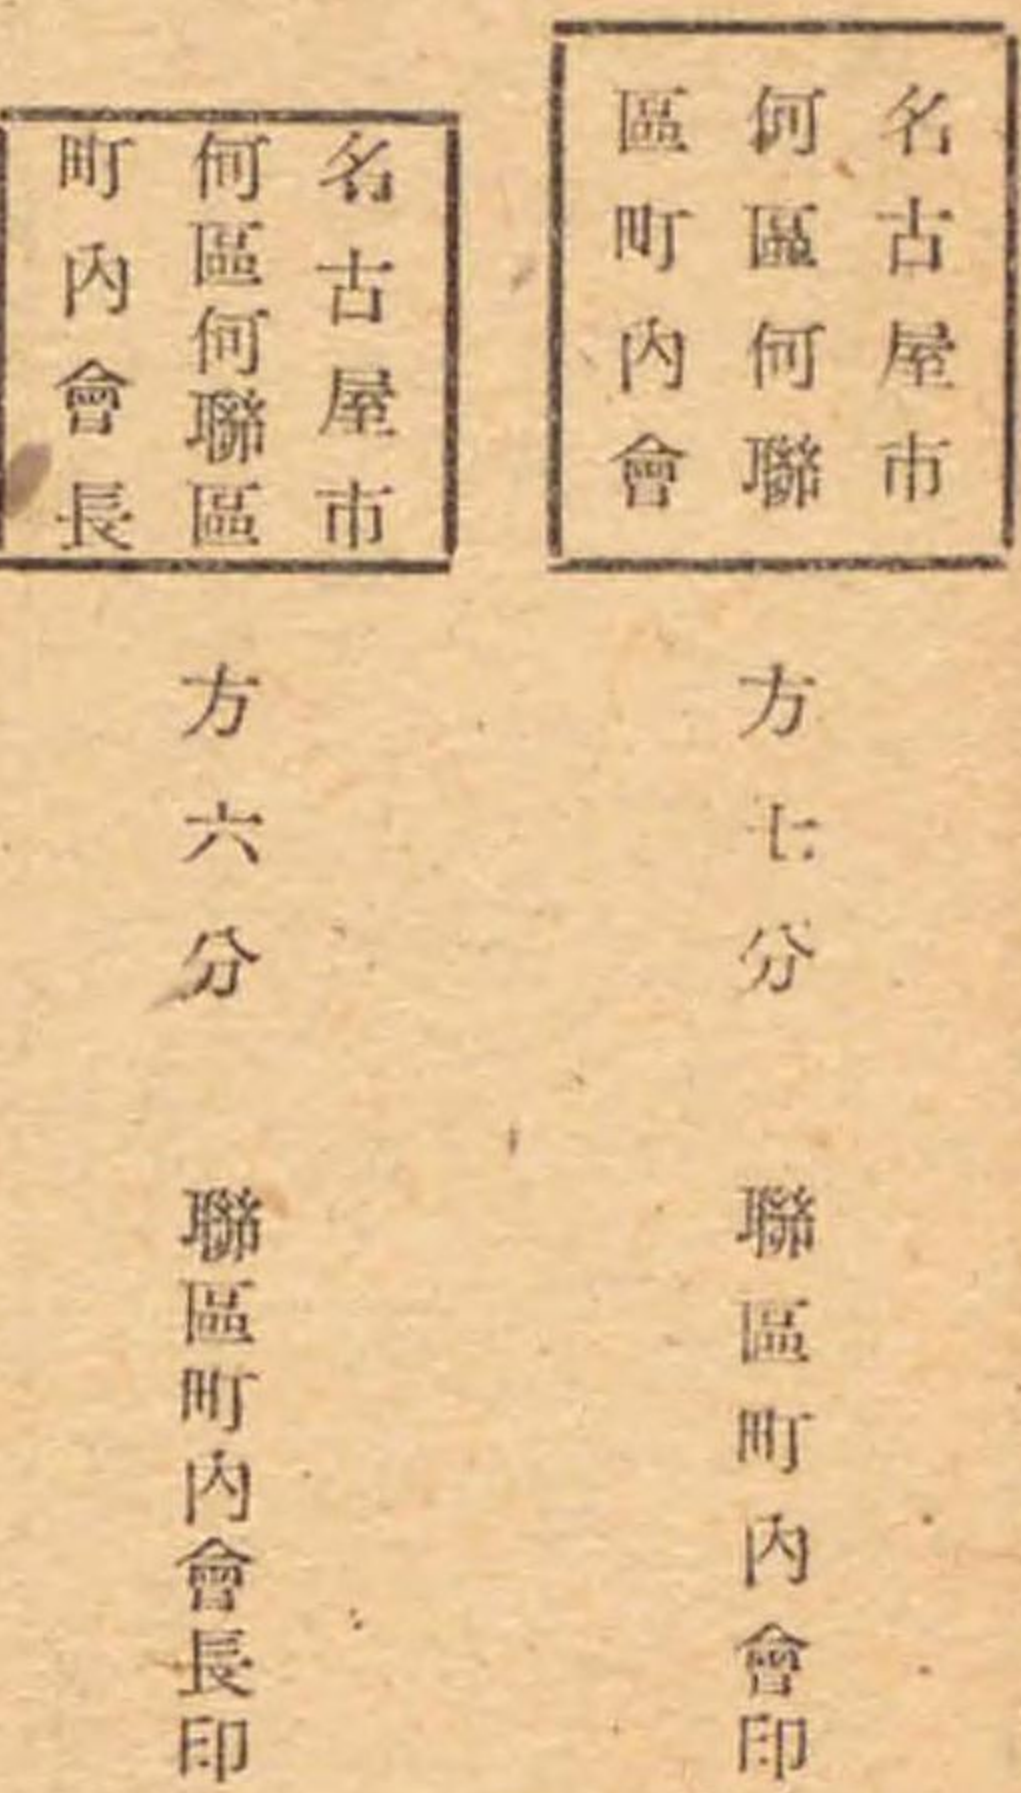 名古屋市
何區何聯
區町內會
方七分
聯區町內會印
名古屋市
何區何聯區
町內會長
方六分
聯區町內會長印